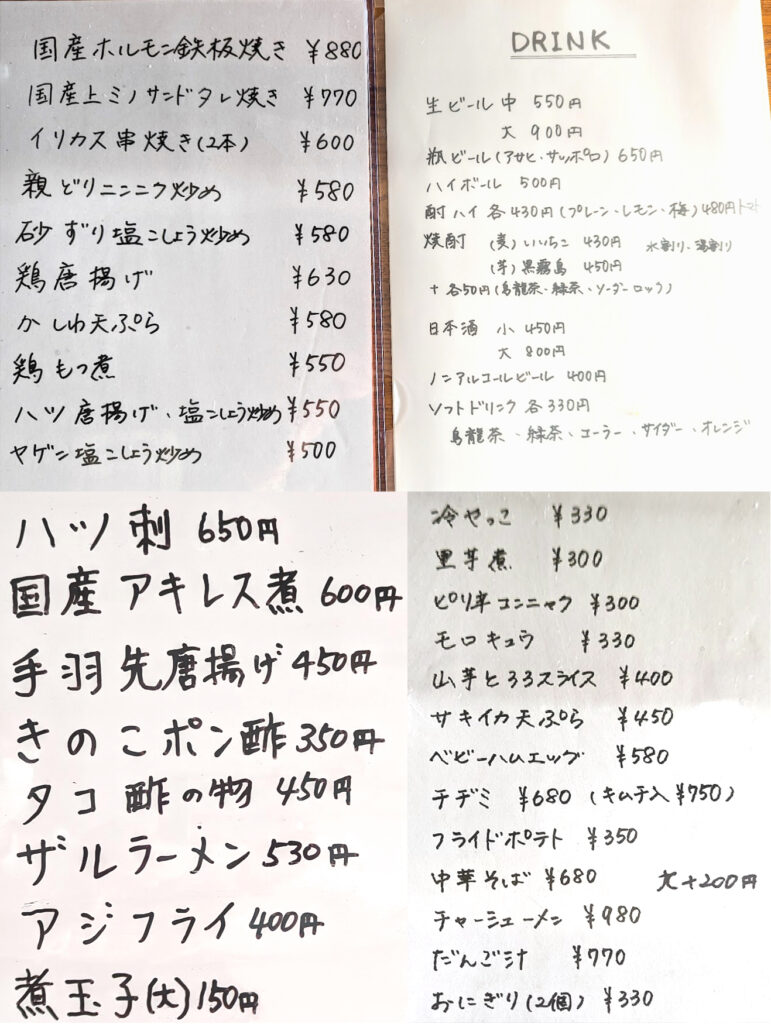 国産ホルモン鉄板焼き ¥880
国産上ミノサンドタレ焼き ¥770
イリカス串焼き(2本) ¥600
親どりニンニク炒め ¥580
砂ずり塩こしょう炒め ¥580
鶏唐揚げ ¥630
かしわ天ぷら ¥580
鶏もつ煮 ¥550
ハツ唐揚げ・塩こしょう炒め ¥550
ヤゲン塩こしょう炒め ¥500
DRINK
生ビール 中 550円
大 900円
瓶ビール(アサヒ・サッポロ) 650円
ハイボール 500円
酎ハイ 各430円(プレーン・レモン・梅) 480円トマト
焼酎 (麦)いいちこ 430円 水割り・湯割り
(芋)黒霧島 450円
+各50円(烏龍茶・緑茶・ソーダーロック)
日本酒 小 450円
大 800円
ノンアルコールビール 400円
ソフトドリンク 各330円
烏龍茶・緑茶・コーラー・サイダー・オレンジ
ハツ刺 650円
国産アキレス煮 600円
手羽先唐揚げ 450円
きのこポン酢 350円
タコ酢の物 450円
ザルラーメン 530円
アジフライ 400円
煮玉子(大) 150円
冷やっこ ¥330
里芋煮 ¥300
ピリ辛コンニャク ¥300
モロキュウ ¥330
山芋とろろスライス ¥400
サキイカ天ぷら ¥450
ベビーハムエッグ ¥580
チヂミ ¥680 (キムチ入¥750)
フライドポテト ¥350
中華そば ¥680 大+200円
チャーシューメン ¥980
だんご汁 ¥770
おにぎり(2個) ¥330